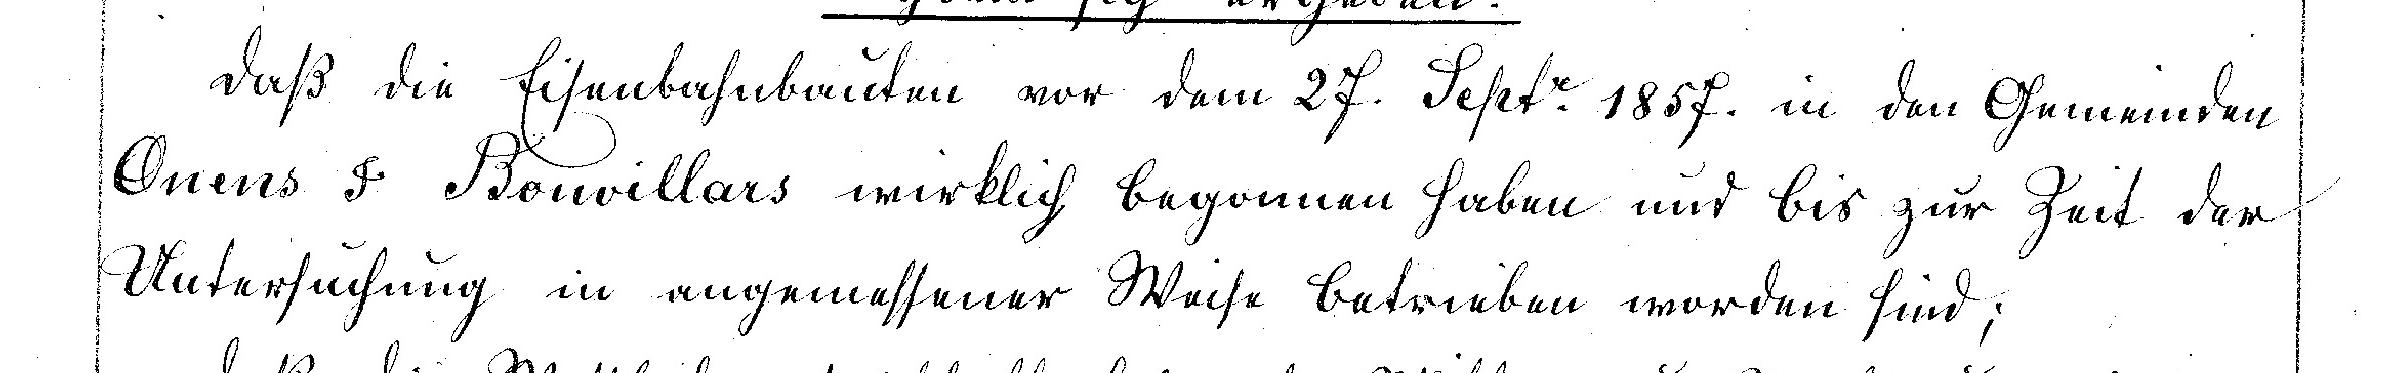 sich ergeben:
daß die Eisenbahnbauten vor dem 27. Septr. 1857. in den Gemeinden
Onens & Bonvillars wirklich begonnen haben und bis zur Zeit der
Untersuchung in angemessener Weise betrieben worden sind;
daß die